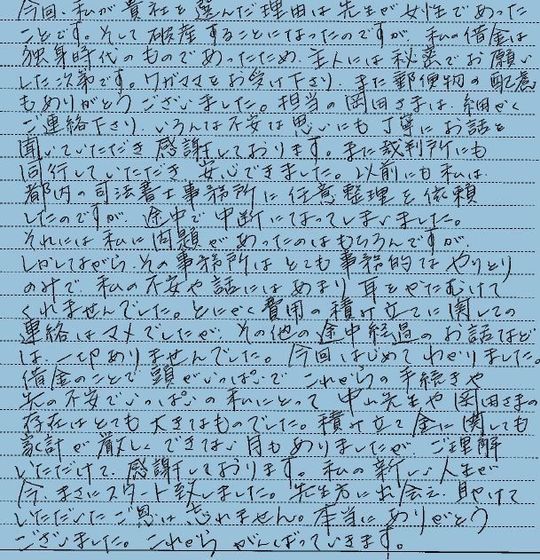 今回、私が貴社を選んだ理由は先生が女性であった
ことです。そして破産することになったのですが、私の借金は
独身時代のものであったため、主人には秘密でお願い
した次第です。ワガママをお受け下さり、また郵便物の配慮
もありがとうございました。担当の岡田さまは、細かく
ご連絡下さり、いろんな不安な思いにも丁寧にお話を
聞いていただき感謝しております。また裁判所にも
同行していただき安心できました。以前にも私は
都内の司法書士事務所に任意整理を依頼
したのですが、途中で中断になってしまいました。
それには私に問題があったのはもちろんですが、
しかしながら、その事務所はとても事務的なやりとり
のみで、私の不安や話にはあまり耳をかたむけて
くれませんでした。とにかく費用の積み立てに関しての
連絡はマメでしたが、その他の途中経過のお話など
は、一切ありませんでした。今回はじめてわかりました。
借金のことで頭がいっぱいで、これからの手続きや
先の不安でいっぱいの私にとって中山先生や岡田さまの
存在はとても大きなものでした。積み立て金に関しても
家計が厳しくできない月もありましたが、ご理解
いただけて、感謝しております。私の新しい人生が
今、まさにスタート致しました。先生方に出会え、助けて
いただいたご恩は忘れません。本当にありがとう
ございました。これからがんばっていきます。